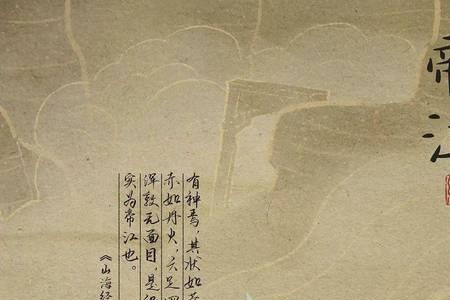 帝江
有神焉，其状如
赤如丹火，六足四
浑敦无面目，是
实为帝江也。
《山海经